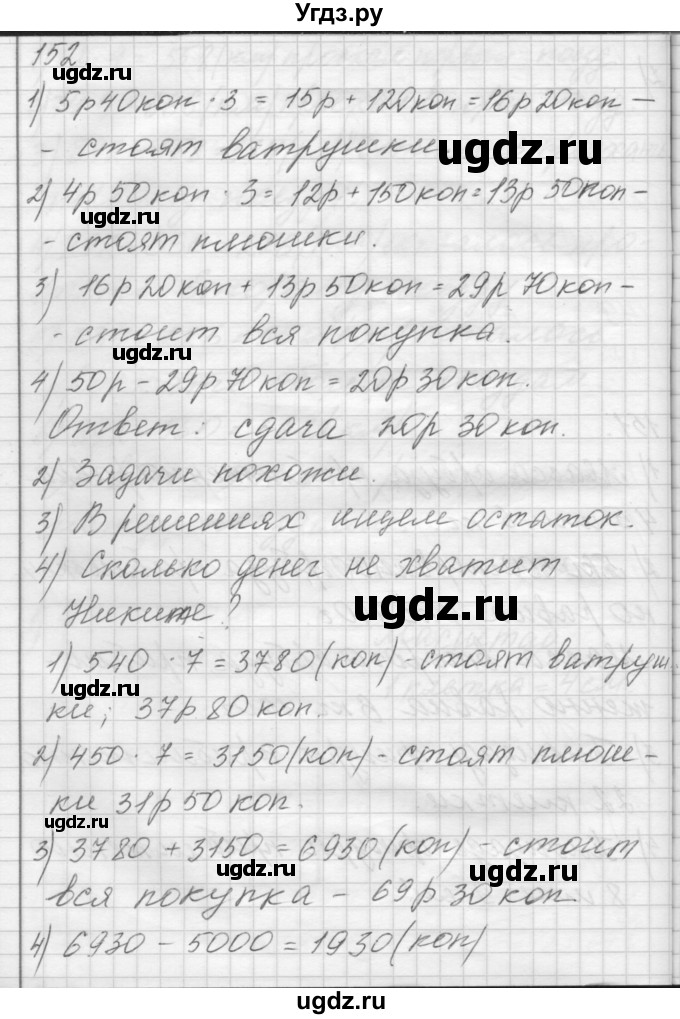 Угдз.ру
152
ugdz.ru
1) 5р40коп · 3 = 15р + 120коп = 16р 20коп —
- стоят ватрушки.
ugdz.ru
ugdz.ru
2) 4р 50коп · 3 = 12р + 150коп = 13р 50коп –
ugdz.ru
- стоят плюшки.
3) 16р 20коп + 13р 50коп = 29р 70коп –
- стоит вся покупка.
ugdz.ru
4) 50р – 29р 70коп = 20р 30коп.
Ответ: сдача 20р 30коп.
ugdz.ru
2) Задачи похожи.
3) В решениях ищем остаток.
4) Сколько денег не хватит
ugdz.ru
Никите?
ugdz.ru
1) 540 · 7 = 3780 (коп) - стоят ватруш-
ки; 37р 80коп.
ugdz.ru
2) 450 · 7 = 3150 (коп) - стоят плюш-
ки 31р 50 коп.
ugdz.ru
3) 3780 + 3150 = 6930 (коп) - стоит
вся покупка – 69р 30коп.
4) 6930 – 5000 = 1930 (коп)
ugdz.ru
ugdz.ru